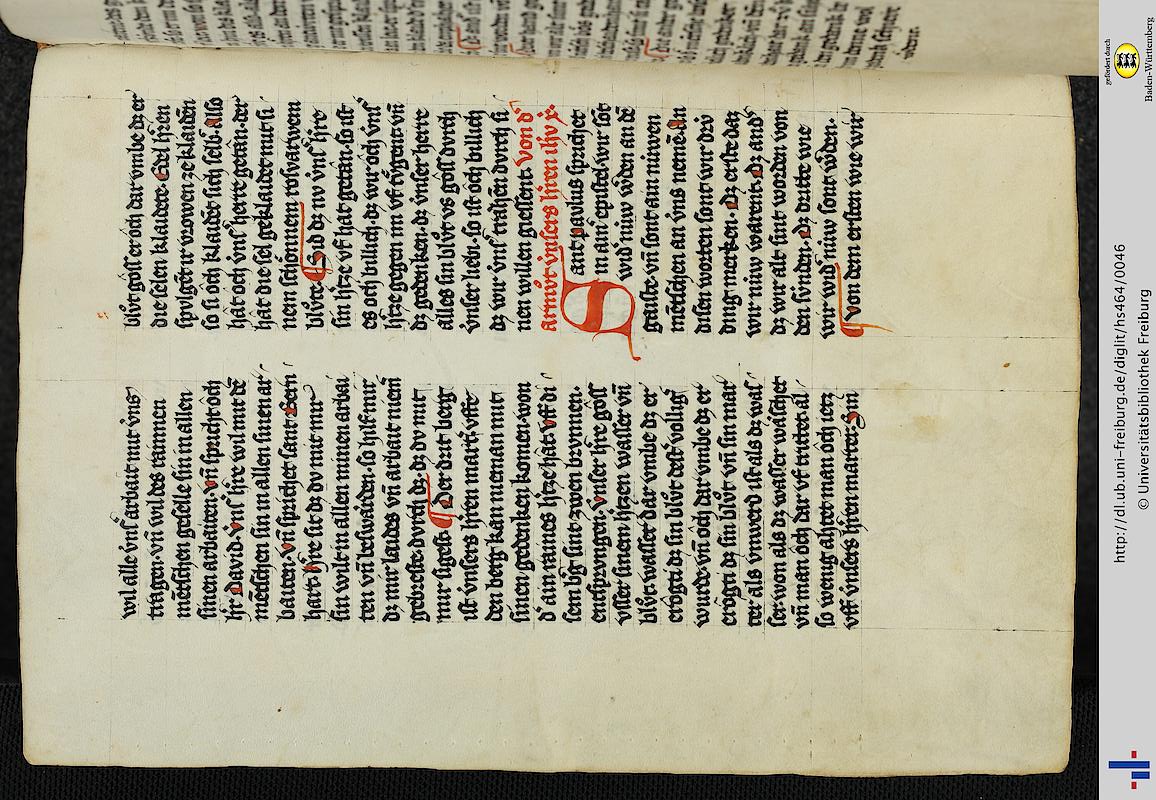 wil alle vnſ arbait mit vns
tragen. vn̄ wil des rainnen
mētſchen geſelle ſin in allen
ſinen arbaiten. vn̄ ſpricht ŏch
hr̄ David. Vnſ' hr̄re wil mit dē
mētſchen ſin in allen ſinen ar
baiten. vn̄ ſprichet ſant Bern
hart. hr̄re ſit dz dv mit mir
ſin wilt in allen minen arbai
ten vn̄ beſwærden. ſo hilf mir
dz mir laides vn̄ arbait niem̄
gebreſte. dvrch dz. dz dv mit
mir ſigeſt. ¶ Der drit berg
iſt vnſers hr̄ren mart'. vffe
den berg kan nieman mit
ſinen gedenken komen. won
d' ain raines hr̄ze hat. vff di
ſem bg ſint zwen brvnnen.
entſprvngen. vnſer hr̄re goſſ
vſſer ſinem hr̄zen waſſer vn̄
blv̊t. waſſer dar vmbe dz er
erŏgti dz ſin blv̊t deſt vollig'
wurde. vn̄ ŏch dar vmbe dz er
erogti dz ſin blv̊t vn̄ ſin mar
ter als vnwerd iſt als dz waſ
ſer. won als dz waſſer wäſchet
vn̄ man ŏch dar vf trittet. al
ſo weng ahtet man ŏch ietz
vff vnſers hr̄ren marter. Sin
blv̊t goſſ er ŏch dar vmbe dz er
die ſelen klaidete. Edel hr̄ren
ſpvlgēt ir vrowen ze klaiden
ſo ſi ŏch klaidēt ſich ſelb. Alſo
hat ŏch vnſ' herre getan. der
hat die ſel geklaidet mit ſi
nem ſchŏnnem roſvarwem
blv̊te. ¶ Sid dz nv vnſ' hr̄re
ſin hr̄ze vf hat getan. ſo iſt
es ŏch billich. dz wir ŏch vnſ'
hr̄ze gegen im vf tv̊gent. vn̄
dz gedenken. dz vnſer herre
alles ſin blv̊t vs goſſ dvrch
vnſer lieb. ſo iſt ŏch billich
dz wir vnſ' trähen dvrch ſi
nen willen gieſſent. Von d'
armv̊t vnſers hr̄ren ih̄v x̄.
Sant paulus ſprichet
in ain' epiſtel wir ſōt
wid' niuw w'den an dē
gaiſte. vn̄ ſont ain niuwen
mētſchen an vns nemē. An
diſen worten ſont wir drv
ding merken. Dz erſte. daz
wir niuw waren. Dz and'
dz wir alt ſint worden von
den ſvnden. Dz dritte wie
wir wid' niuw ſont w'den.
¶ von dem erſten wie wir
gefördert durch
Baden-Württemberg
http://dl.ub.uni-freiburg.de/diglit/hs464/0046
© Universitätsbibliothek Freiburg